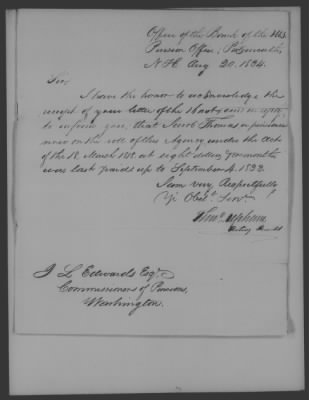 Office of the Bank of the U.S.
Pension Office, Portsmouth,
N.H. Aug 20. 1834.
Sir
I have the honor to acknowledge the
receipt of your letter of the and in reply
to inform you, that Jacob Thomas a pensioner
now on the roll of this Agency under the Act
of the 18 March 1818 at eight dollars per month
was last paid up to September 4. 1833.
I am very Respectfully
Yr Obdt Servt
Upham
J L Edwards Esqr
Commissioner of Pensions,
Washington.